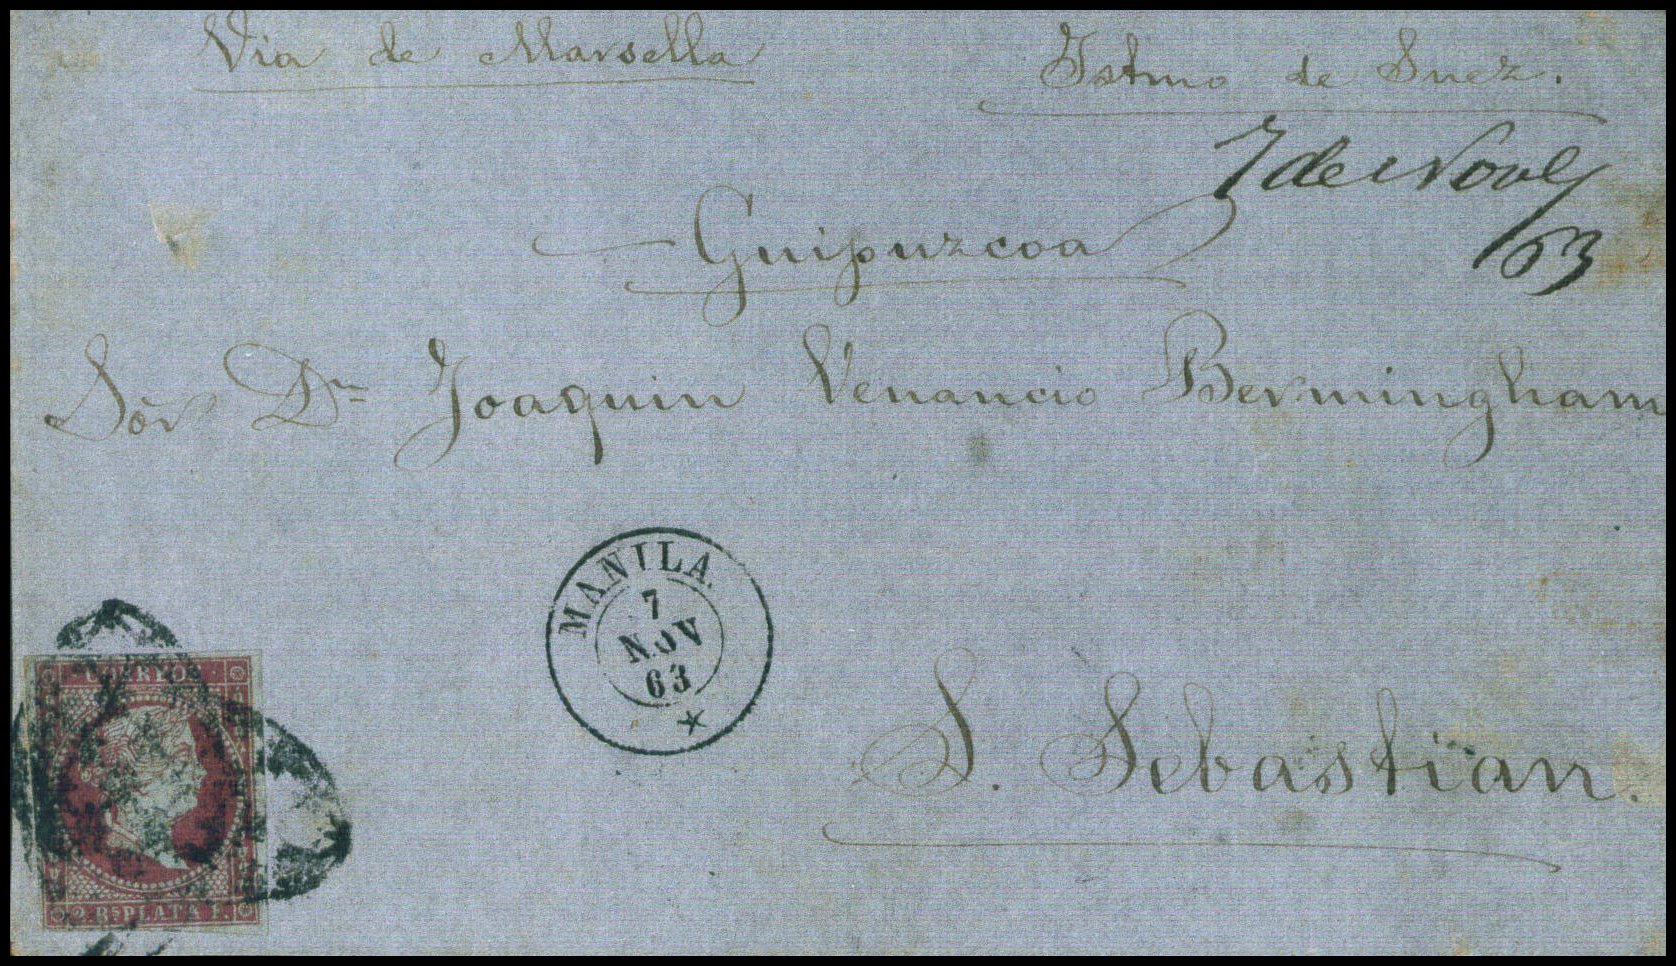 Via de Marsella
Istmo de Suez.
7 de Nove
/63
Guipuzcoa
Sòr Dn Joaquin Venancio Bermingham
MANILA.
7
NOV
63
S. Sebastian.
CORREOS
2 Rs PLATA F.